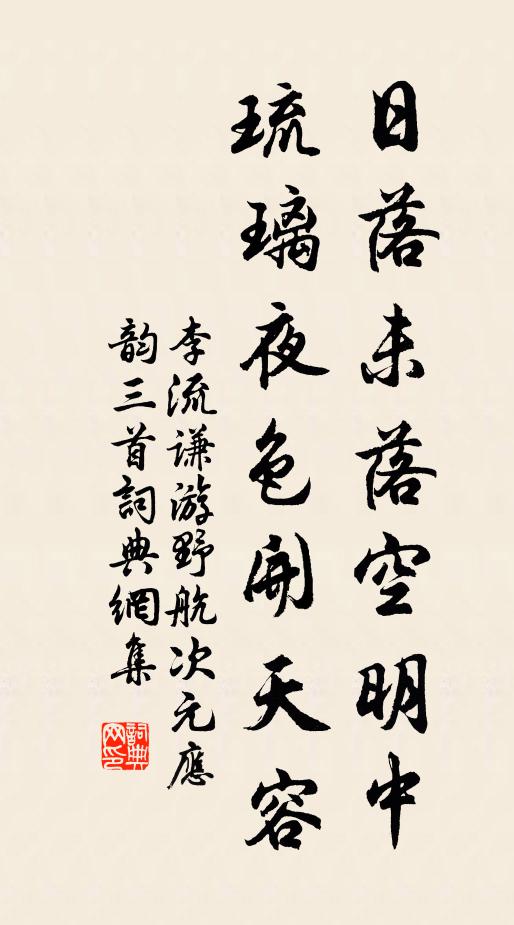 日落未落空明中
琉璃夜色開天容
李流謙游野航次元應
韵三首詞典網集
詞典网印